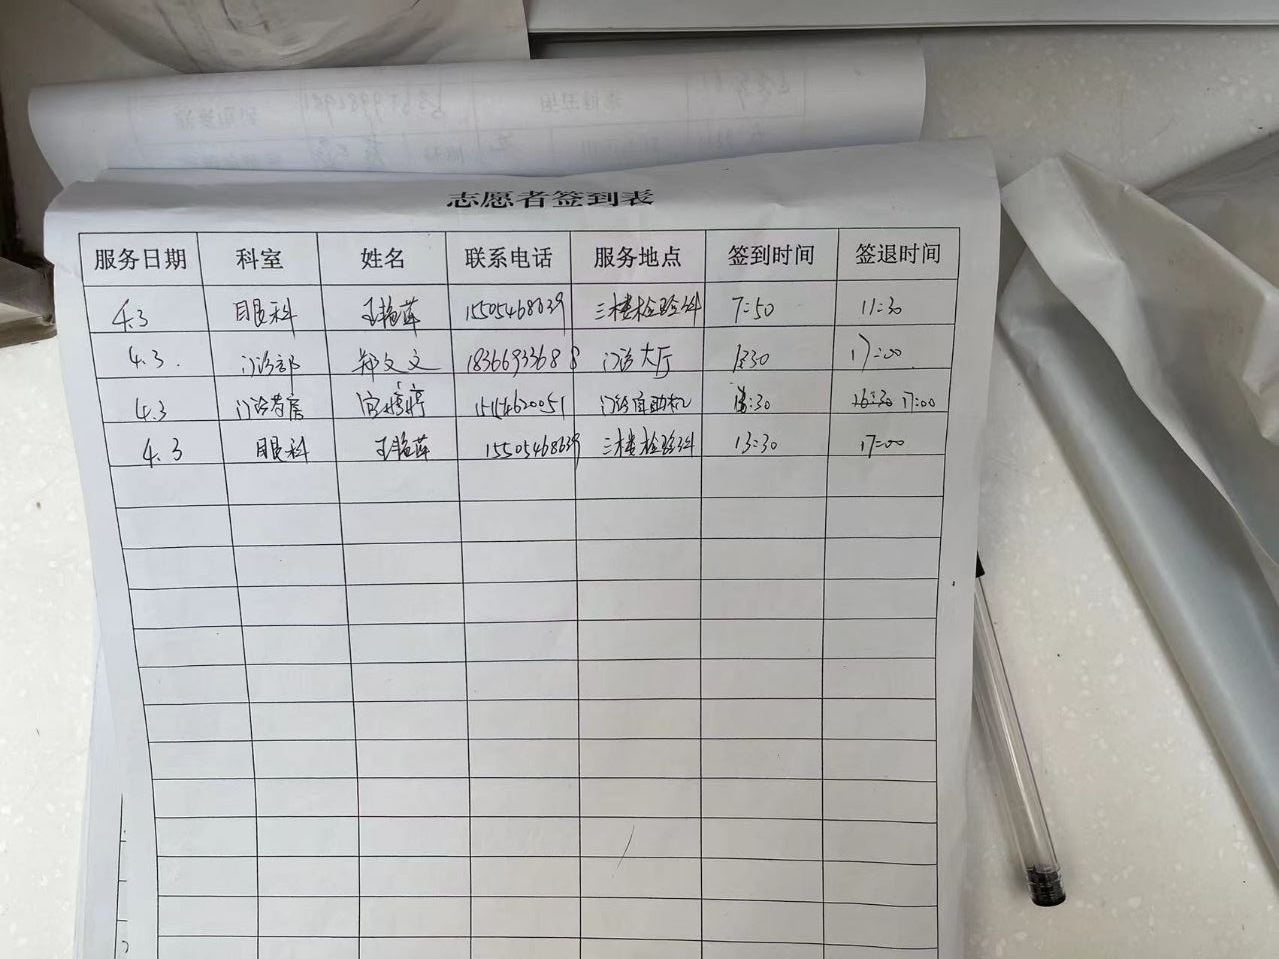 志愿者签到表
服务日期 科室 姓名 联系电话 服务地点 签到时间 签退时间
4.3 眼科 王艳莲 15505468639 三楼检验科 7:50 11:30
4.3. 门诊部 郑文文 18366933688 门诊大厅 13:30 17:00
4.3 门诊药房 宫婷婷 门诊自助机 13:30 16:30 17:00
4.3 眼科 王艳莲 15505468639 三楼检验科 13:30 17:00